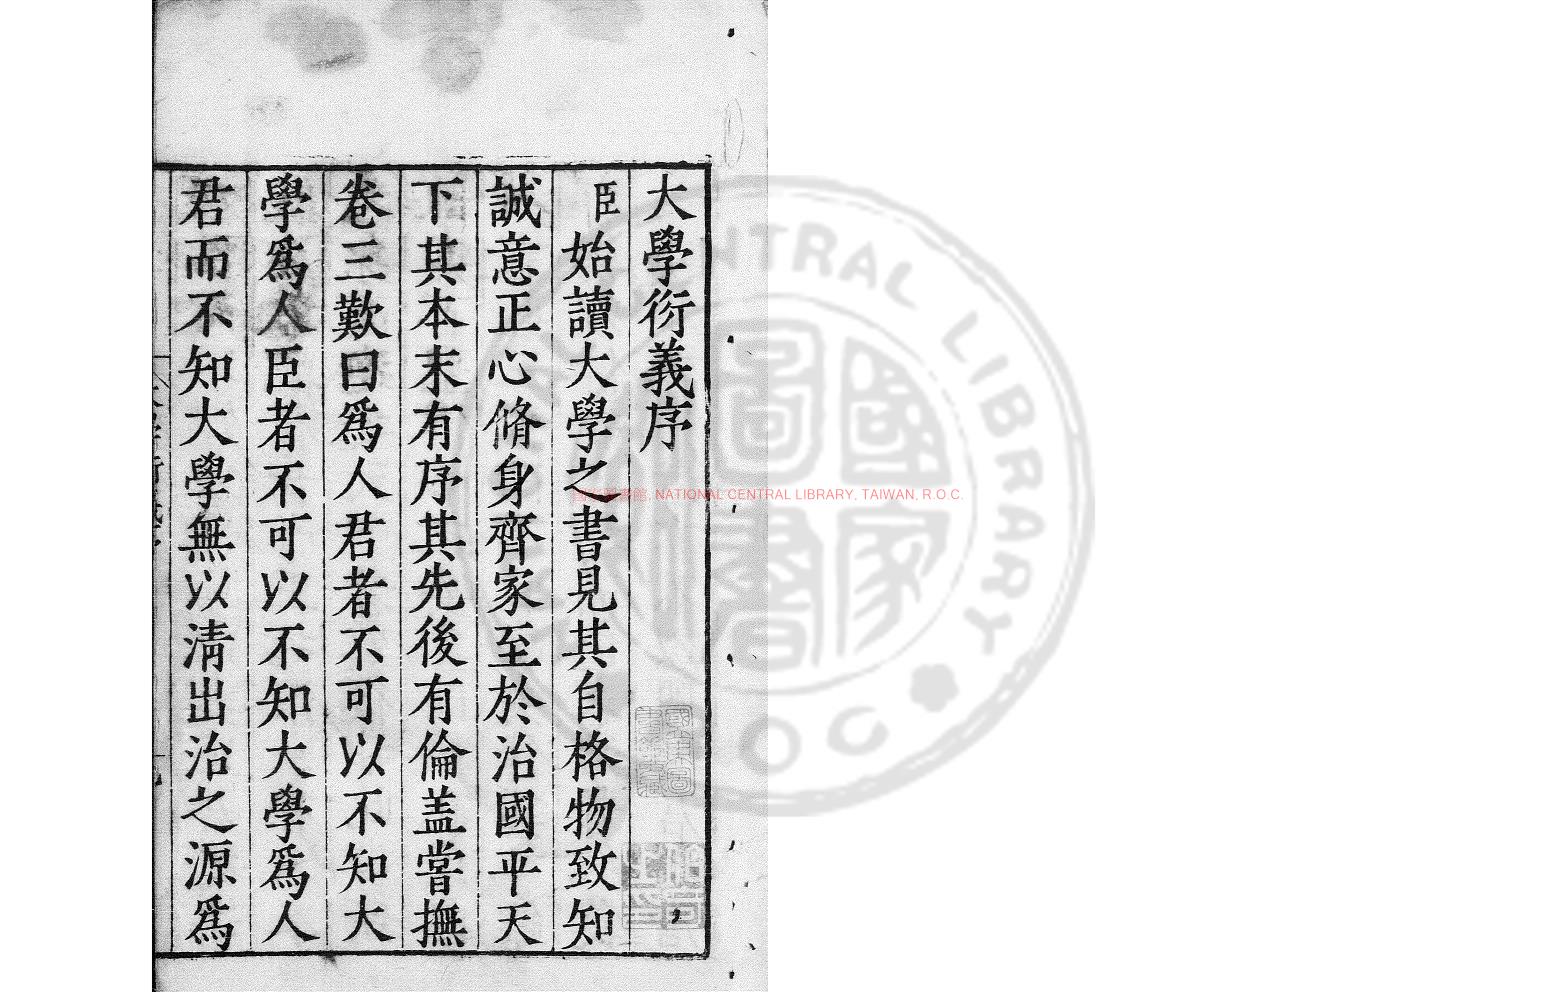 大學衍義序
臣始讀大學之書見其自格物致知
誠意正心脩身齊家至於治國平天
下其本末有序其先後有倫盖嘗撫
卷三歎曰爲人君者不可以不知大
學爲人臣者不可以不知大學爲人
君而不知大學無以清出治之源爲
國家圖書館, NATIONAL CENTRAL LIBRARY, TAIWAN, R.O.C.